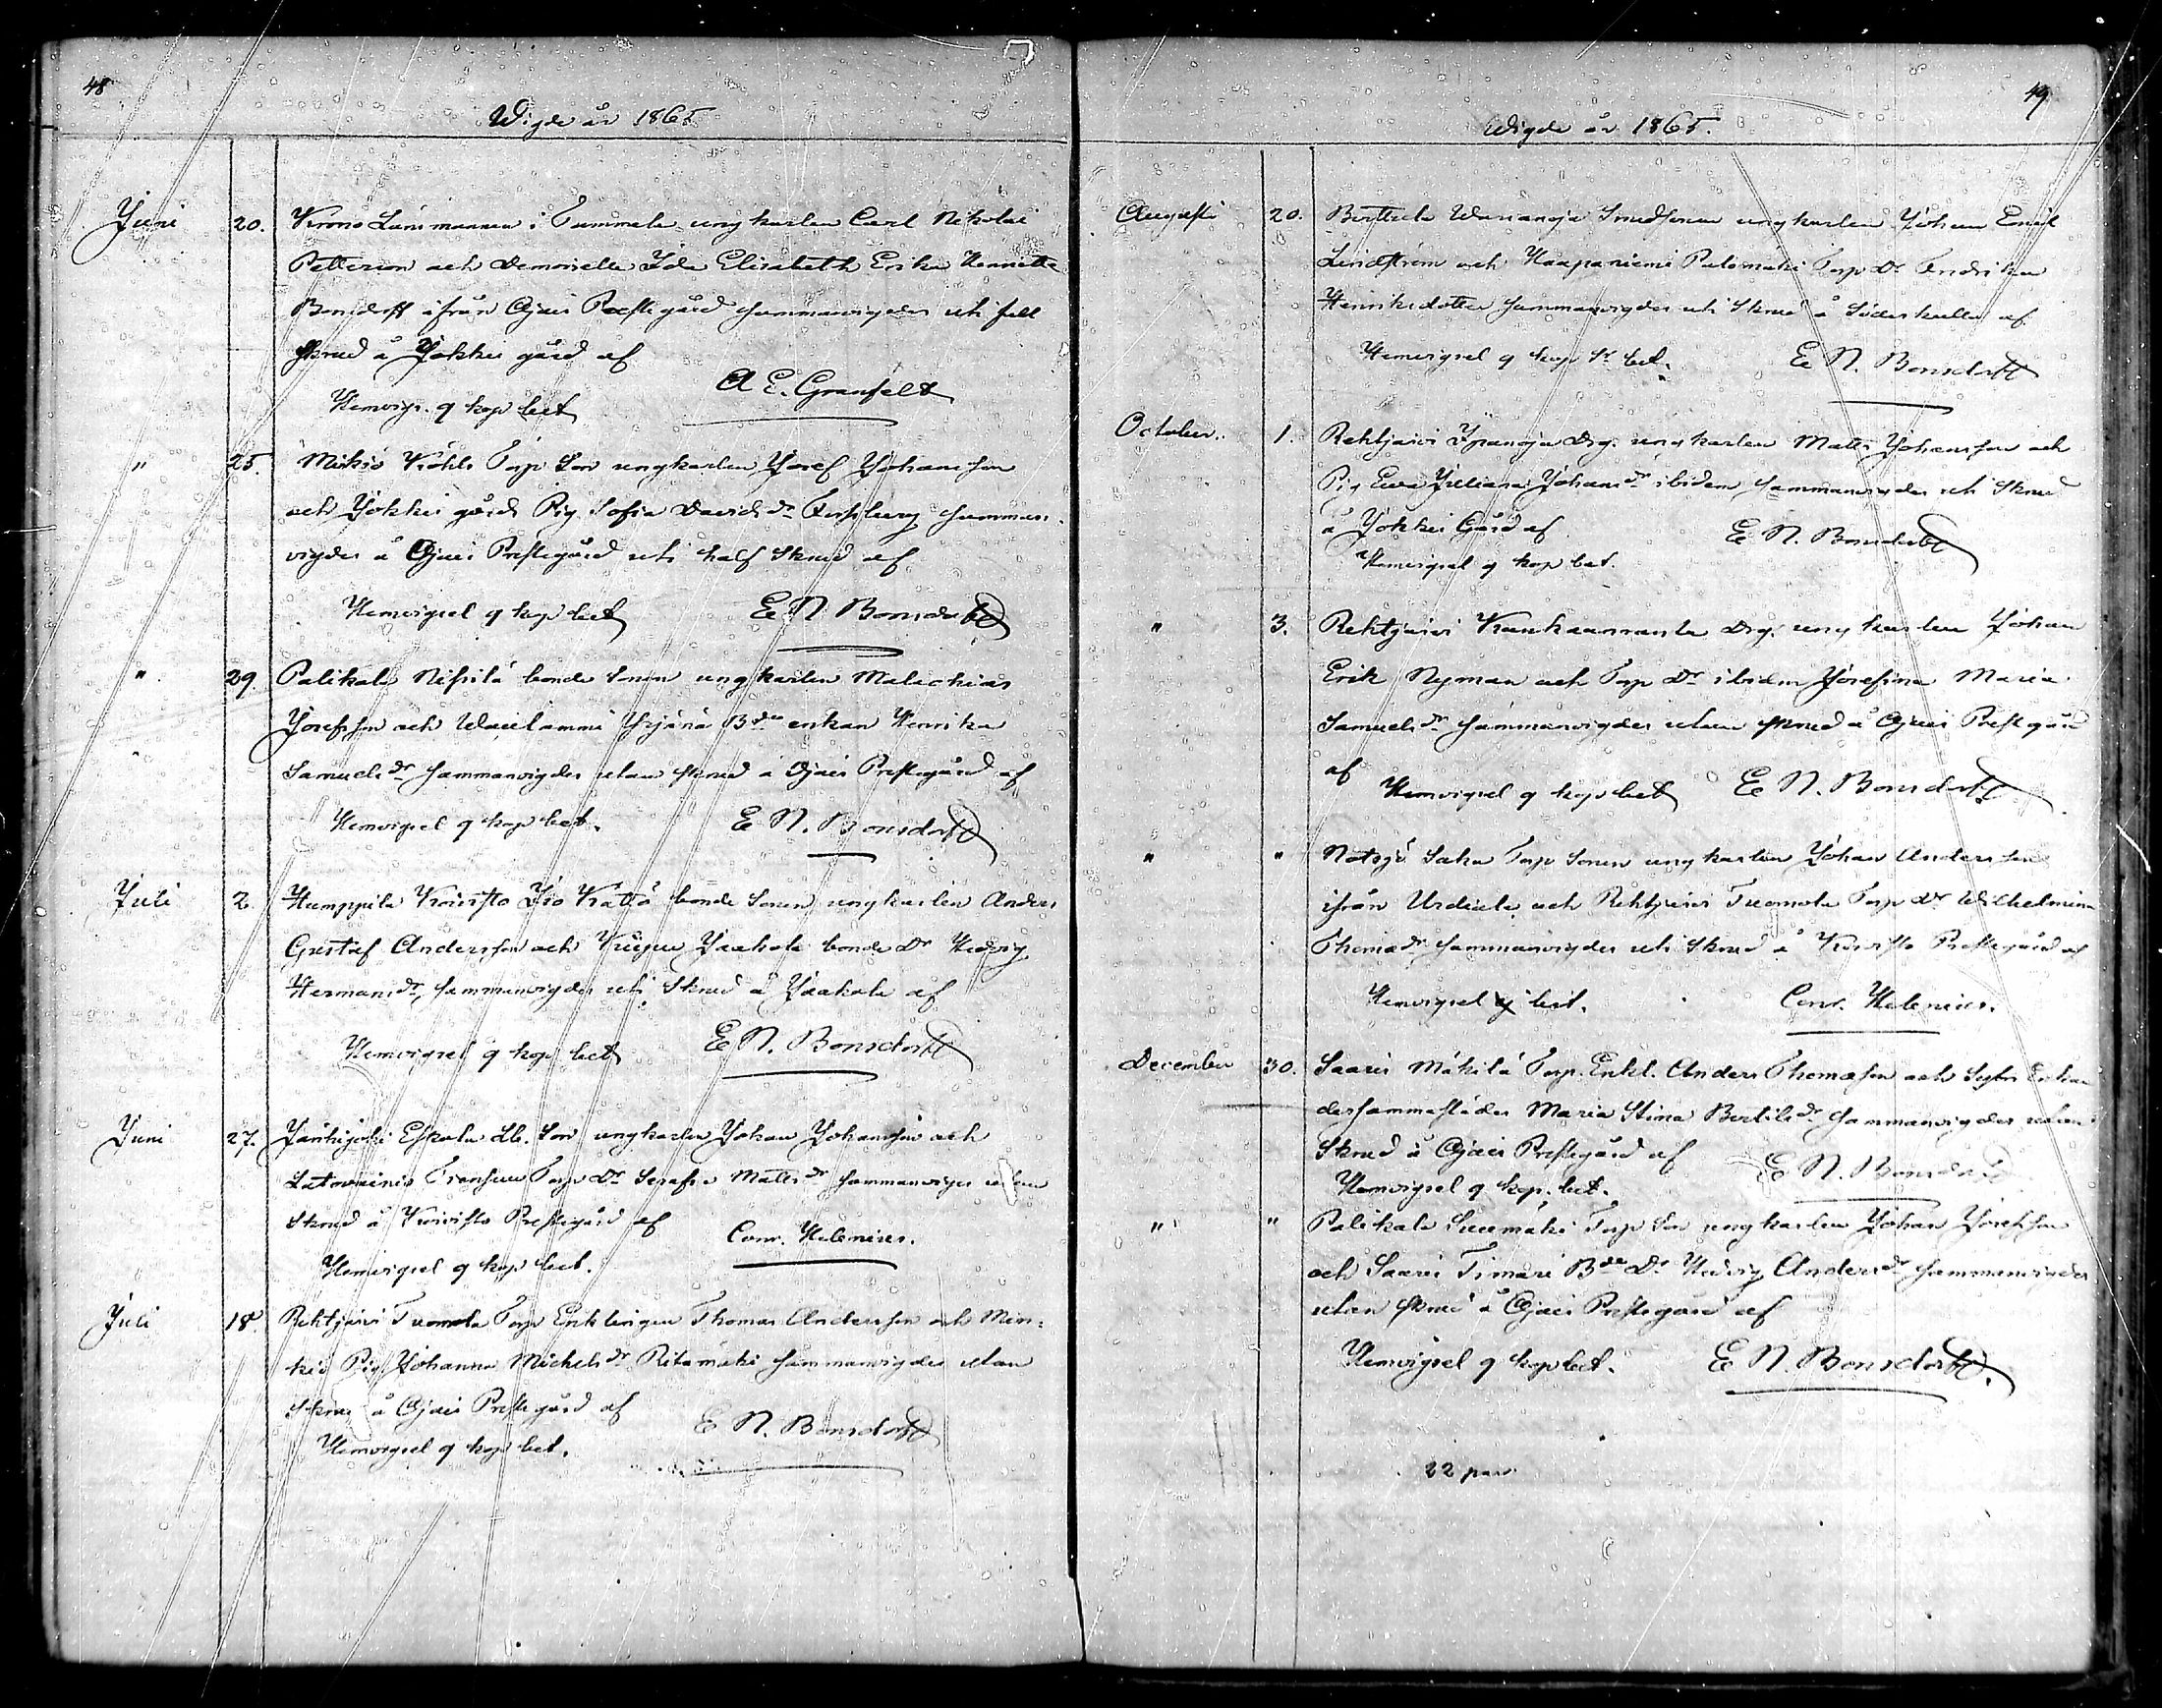 48
Wigde år 1865
Juni 20. Krono Länsmannen i Tammela ungkarlen Carl Nikolai
Petterson och Demoiselle Ida Elisabeth Erika Henriette
Bonsdorff ifrån Ojais Prestegård sammanvigdes uti full
skrud å Jokkis gård af
A E. Granfelt
Hemvigs. o kop bet
" 25. Torp Son ungkarlen Josef Johansson
och Jokkis gårds Pig. Sofia Davids dr samman-
vigdes å Ojais Prestegård uti half skrud af
Hemvigsel o kop bet E N. Bonsdorff
" 29. Palikala Nissilä bonde Sonen ungkarlen Malachias
Josefsson och Waulammi Yrjänä Bde enkan Henrika
Samuels dr sammanvigdes utan skrud å Ojais Prestegård af
Hemvigsel o kop bet. E N. Bonsdorff
Juli 2. Humppila Koivisto Iso Kättö bonde Sonen ungkarlen Anders
Gustaf Andersson och Jaakola bonde Dr Hedvig
Hermans dr, sammanvigdes uti Skrud å Jaakola af
Hemvigsel o kop bet E N. Bonsdorff
Juni 27. Eskola Son ungkarlen Johan Johansson och
Latovainio Torp Dr Serafia Matts dr sammanvigdes utan
Skrud å Koivisto Prestegård af
Conr. Helenius.
Hemvigsel o kop bet.
Juli 18. Rehtijärvi Tuomola Torp Enklingen Thomas Andersson och Min-
kiö Pig Johanna Michels dr Ritamäki sammanvigdes utan
Skrud å Ojais Prestegård af
E N. Bonsdorff
Hemvigsel o kop bet.
49
Wigde år 1865.
Augusti 20. Warianoja Smedsonen ungkarlen Johan Emil
Lindström och Haapaniemi Palomäki Torp Dr Fredrika
Henriksdotter sammanvigdes uti Skrud å Söderkulla af
Hemvigsel o kop bet. E N. Bonsdorff
October 1. Rehtijärvi Drg. ungkarlen Matts Johansson och
Pig Eva Juliana Johans dr ibidem sammanvigdes uti Skrud
å Jokkis Gård af E N. Bonsdorff
Hemvigsel o kop bet.
" 3. Rehtijärvi Drg. ungkarlen Johan
Erik Nyman och Torp Dr ibidem Josefina Maria
Samuels dr sammanvigdes utan skrud å Ojais Prestegård
af Hemvigsel o kop bet E N. Bonsdorff
" " Notsjö Saha Torp Sonen ungkarlen Johan Andersson
ifrån Urdiala och Rehtijärvi Tuomola Torp Dr Wilhelmina
Thomæ dr sammanvigdes uti Skrud å Koivisto Prestegård af
Hemvigsel ej bet. Conr. Helenius.
December 30. Saaris Mäkilä Torp. Enkl. Anders Thomæson och Enkan
dersammastädes Maria Stina Bertils dr sammanvigdes utan
Skrud å Ojais Prestegård af
E N. Bonsdorff
Hemvigsel o kop. bet.
" " Palikala Suomäki Torp Son ungkarlen Johan Josefsson
och Saaris Timari Bde Dr Hedvig Anders dr sammanvigdes
utan skrud å Ojais Prestegård af
Hemvigsel o kop bet. E N. Bonsdorff.
22 par